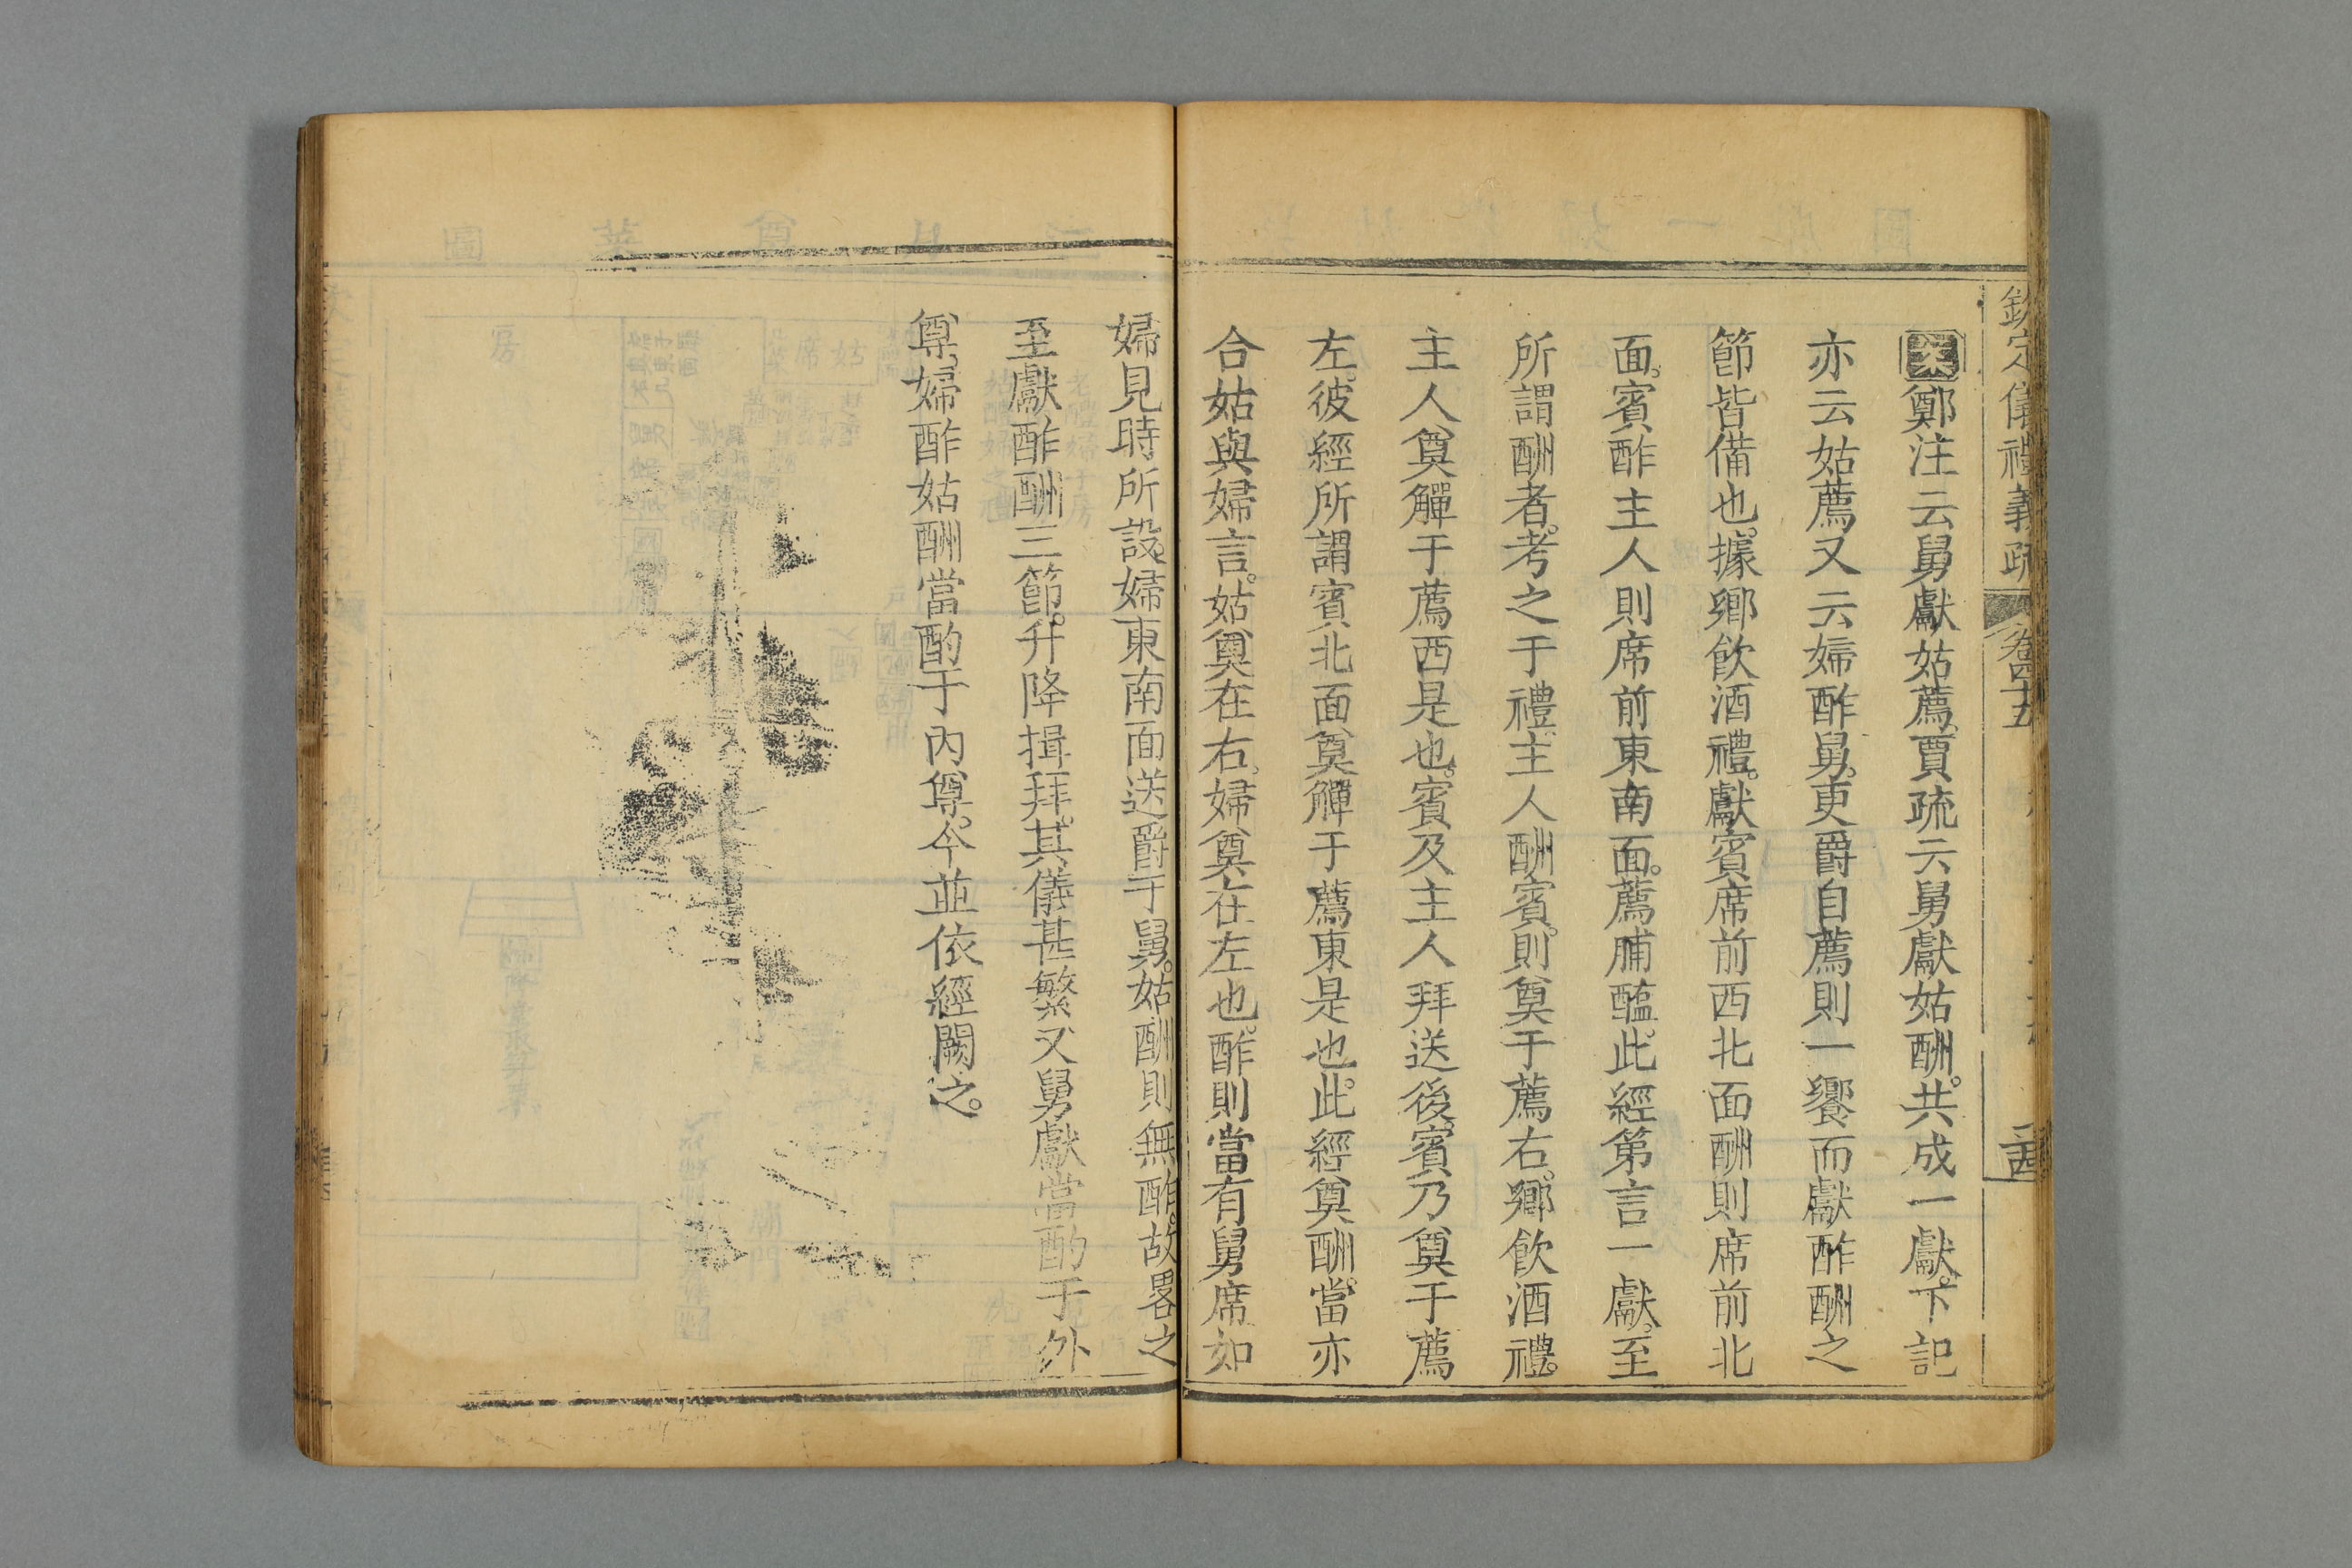 欽定儀禮義疏 卷四十五 二十四
案鄭注云舅獻姑薦。賈疏云舅獻姑酬。共成一獻。下記
亦云姑薦又云婦酢舅。更爵自薦則一饗而獻酢酬之
節皆備也。據鄉飲酒禮。獻賓席前西北面酬則席前北
面。賓酢主人則席前東南面。薦脯醢。此經第言一獻。至
所謂酬者。考之于禮。主人酬賓。則奠于薦右。鄉飲酒禮。
主人奠觶于薦西是也。賓及主人拜送後。賓乃奠于薦
左。彼經所謂賓北面奠觶于薦東是也。此經奠酬。當亦
合姑與婦言。姑奠在右。婦奠在左也。酢則當有舅席如
婦見時所設。婦東南面送爵于舅。姑酬則無酢。故畧之
至獻酢酬三節。升降揖拜。其儀甚繁又舅獻當酌于外
尊。婦酢姑酬當酌于內尊。今並依經闕之。